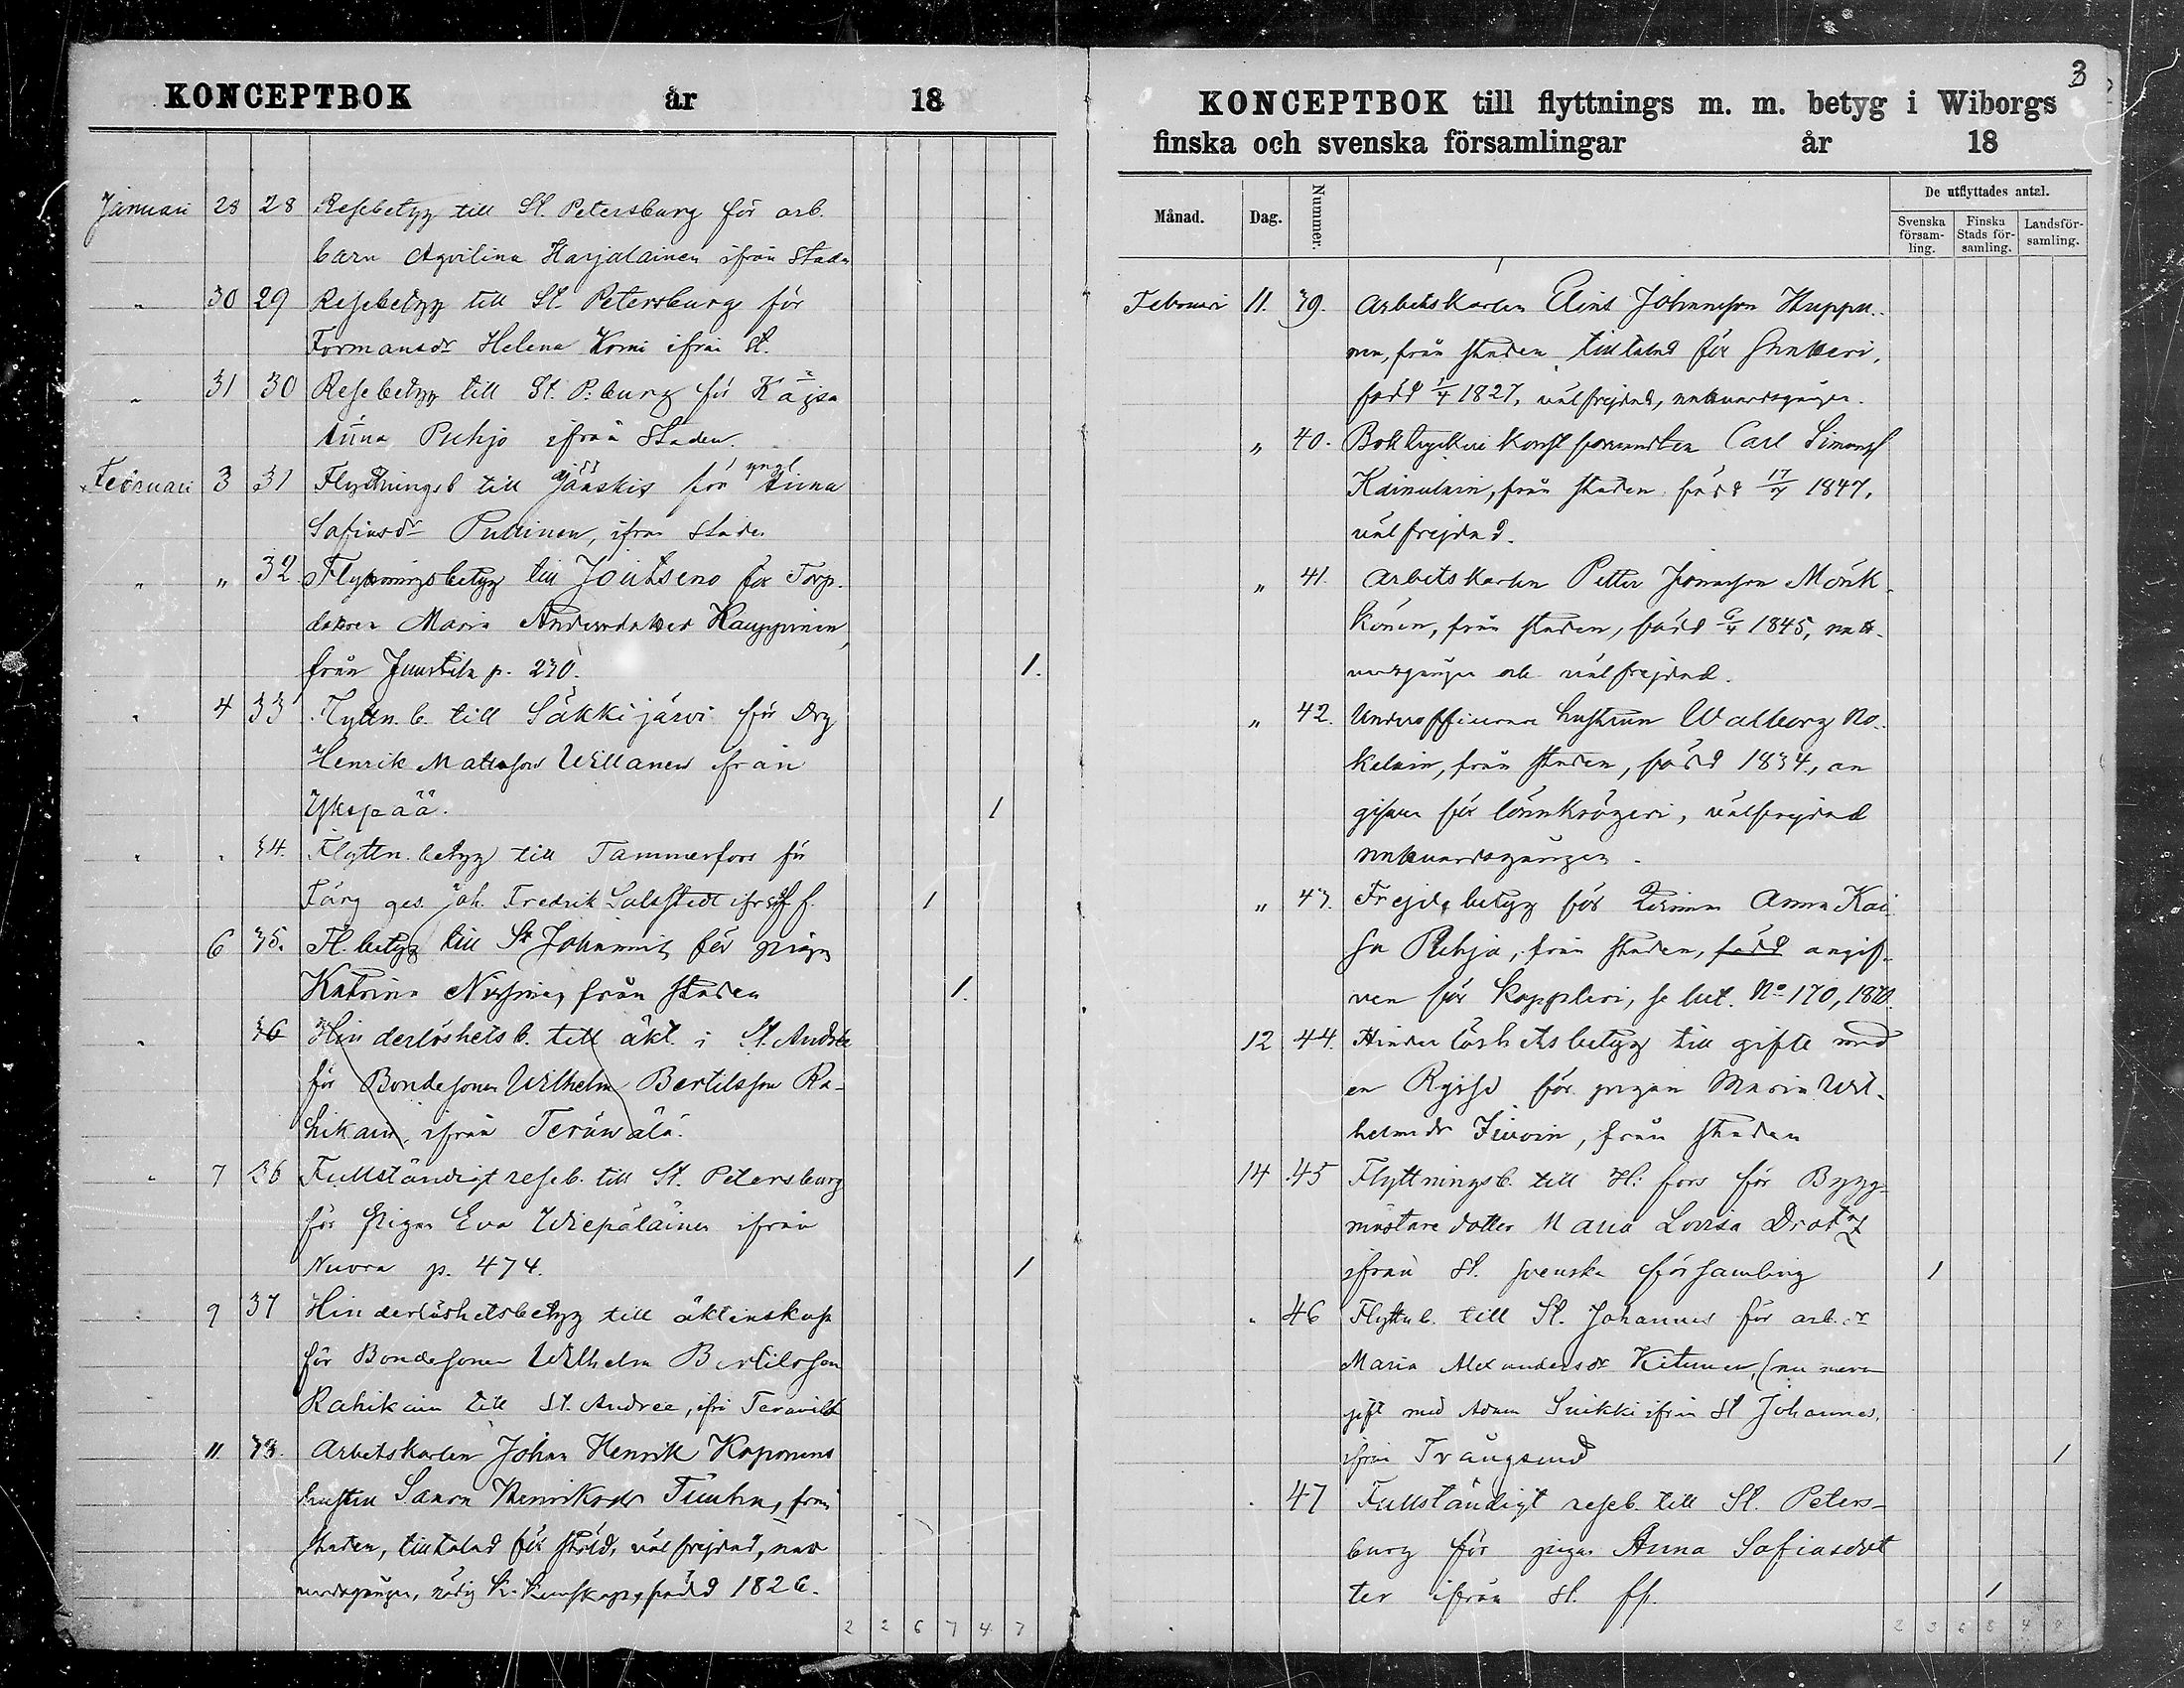 KONCEPTBOK år 18
Januari 28 28 Resebetyg till St. Petersburg för arb.
barn Aqvilina Harjalainen ifrån Staden
" 30 29 Resebetyg till St. Petersburg för
Formansdr Helena Komi ifrån St.
" 31 30 Resebetyg till St. P:burg för Kajsa
Anna Puhjo ifrån Staden.
Februari 3 31 Flyttningsb till Jääskis för yngl Anna
Safiasdr Putinen, ifrån Staden
" " 32. Flyttningsbetyg till Joutseno för Torp.
dottren Maria Andersdotter Kauppinen,
från Juustila p. 230. 1.
" 4 33 Flyttn. b. till Säkkijärvi för Drg
Henrik Mattsson Willanen ifrån
Ykspää. 1
" " 34. Flyttn. betyg till Tammerfors för
Färg ges. Joh. Fredrik Salstedt ifr. Sf f. 1
6 35. Fl. betyg till St Johannis för pigan
Katrina från staden 1.
" 36 Hinderlöshets b. till äkt. i St. Andreæ
för Bondesonen Wilhelm Bertilsson Ra-
hikain, ifrån Terävälä.
" 7 36 Fullständigt reseb. till St. Petersburg
för Pigan Eva Wiepäläinen ifrån
Nuora p. 474. 1
" 9 37 Hinderlöshetsbetyg till äktenskap
för Bondesonen Wilhelm Bertilsson
Rahikain till St. Andreæ, ifrå Terävälä
11. 38. Arbetskarlen Johan Henrik Koponens
hustru Sanna Henriksdr från
staden, tilltalad för stöld, välfrejdad, natt
vardsgången, nödig K. kunskap, född 1826.
2 2 6 7 4 7
3
KONCEPTBOK till flyttnings m. m. betyg i Wiborgs
finska och svenska församlingar år 18
Månad. Dag. Nummer. De utflyttades antal.
Svenska församling. Finska Stads församling. Landsförsamling.
Februari 11. 39. Arbetskarlen Elias Johansson Huppu..
nen, från staden, tilltalad för snatteri,
född 1/4 1827, välfrejdad, nattvardsgången.
" 40. Boktryckeri konstförvandten Carl Simonss
Kainulain, från staden född 17/7 1847,
välfrejdad.
" 41. Arbetskarlen Petter Mönk-
könen, från staden, född 6/4 1845, natt-
vardsgången och välfrejdad.
" 42. Underofficerare hustrun Walborg No-
kelain, från staden, född 1834, an
gifven för lönnkrögeri, välfrejdad
nattvardsgången.
" 43. Frejdebetyg för Anna Kai
sa Puhja, från staden, född angif-
ven för koppleri, se bet. No 170, 1870.
12 44. Hinderlöshetsbetyg till gifte med
en Rysse för pigan Maria Wil-
helmsdr från staden
14 45 Flyttningsb. till H:fors för Bygg-
mästare dotter Maria Lovisa
ifrån St. svenska församling 1
" 46 Flyttn b. till St. Johannes för arb. dr
Maria Alexandersdr Kitunen, (nu mera
gift med Adam Suikki ifrån St Johannes,
ifrån Trångsund 1
" 47 Fullständigt reseb. till St. Peters-
burg för pigan Anna Safiasdot
ter ifrån St. ff. 1
2 3 6 8 4 8